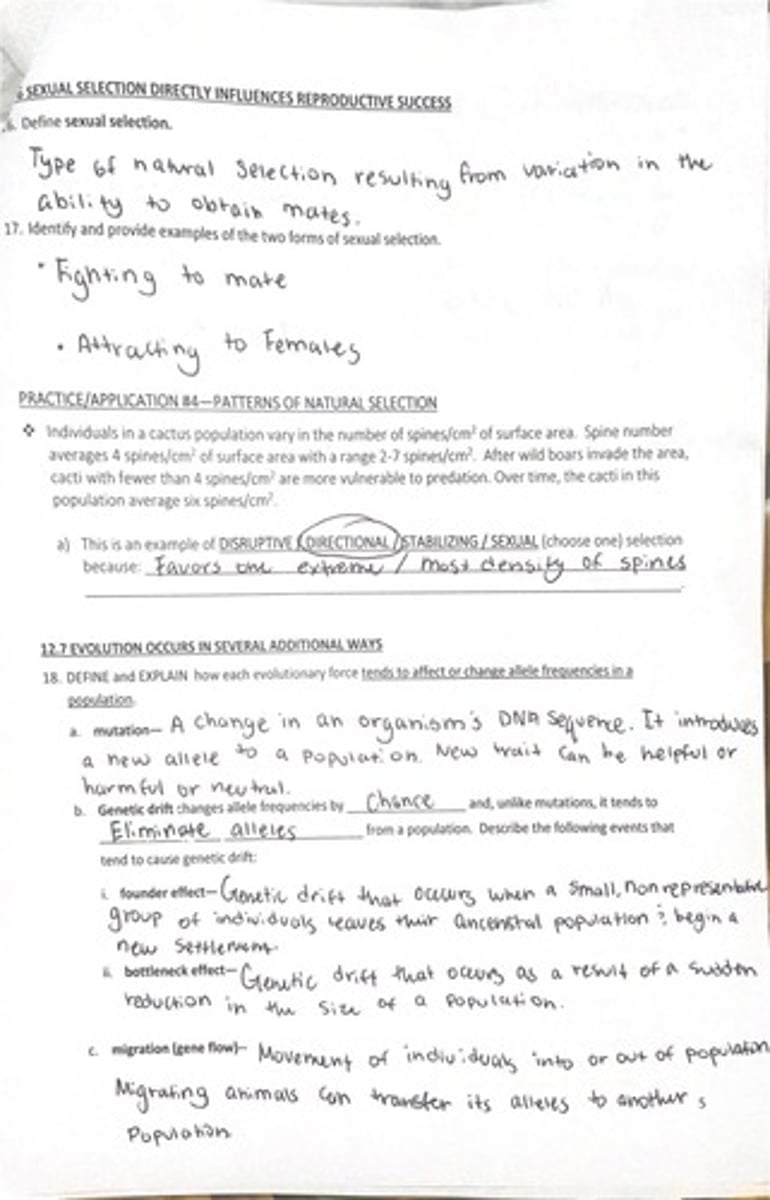 SEXUAL SELECTION DIRECTLY INFLUENCES REPRODUCTIVE SUCCESS
6. Define sexual selection.
Type of natural selection resulting from variation in the
ability to obtain mates.
17. Identify and provide examples of the two forms of sexual selection.
• Fighting to mate
• Attracting to Females
PRACTICE/APPLICATION #4—PATTERNS OF NATURAL SELECTION
❖ Individuals in a cactus population vary in the number of spines/cm² of surface area. Spine number
averages 4 spines/cm² of surface area with a range 2-7 spines/cm². After wild boars invade the area,
cacti with fewer than 4 spines/cm² are more vulnerable to predation. Over time, the cacti in this
population average six spines/cm².
a) This is an example of DISRUPTIVE / DIRECTIONAL / STABILIZING / SEXUAL (choose one) selection
because: Favors one extreme / most density of spines
12.7 EVOLUTION OCCURS IN SEVERAL ADDITIONAL WAYS
18. DEFINE and EXPLAIN how each evolutionary force tends to affect or change allele frequencies in a
population.
a. mutation— A change in an organism's DNA sequence. It introduces
a new allele to a population. New trait can be helpful or
harmful or neutral.
b. Genetic drift changes allele frequencies by Chance and, unlike mutations, it tends to
Eliminate alleles from a population. Describe the following events that
tend to cause genetic drift:
i. founder effect— Genetic drift that occurs when a small, nonrepresentative
group of individuals leaves their ancenstral population & begin a
new settlement.
ii. bottleneck effect— Genetic drift that occurs as a result of a sudden
reduction in the size of a population.
c. migration (gene flow)— Movement of individuals into or out of population
Migrating animals can transfer its alleles to another s
Population